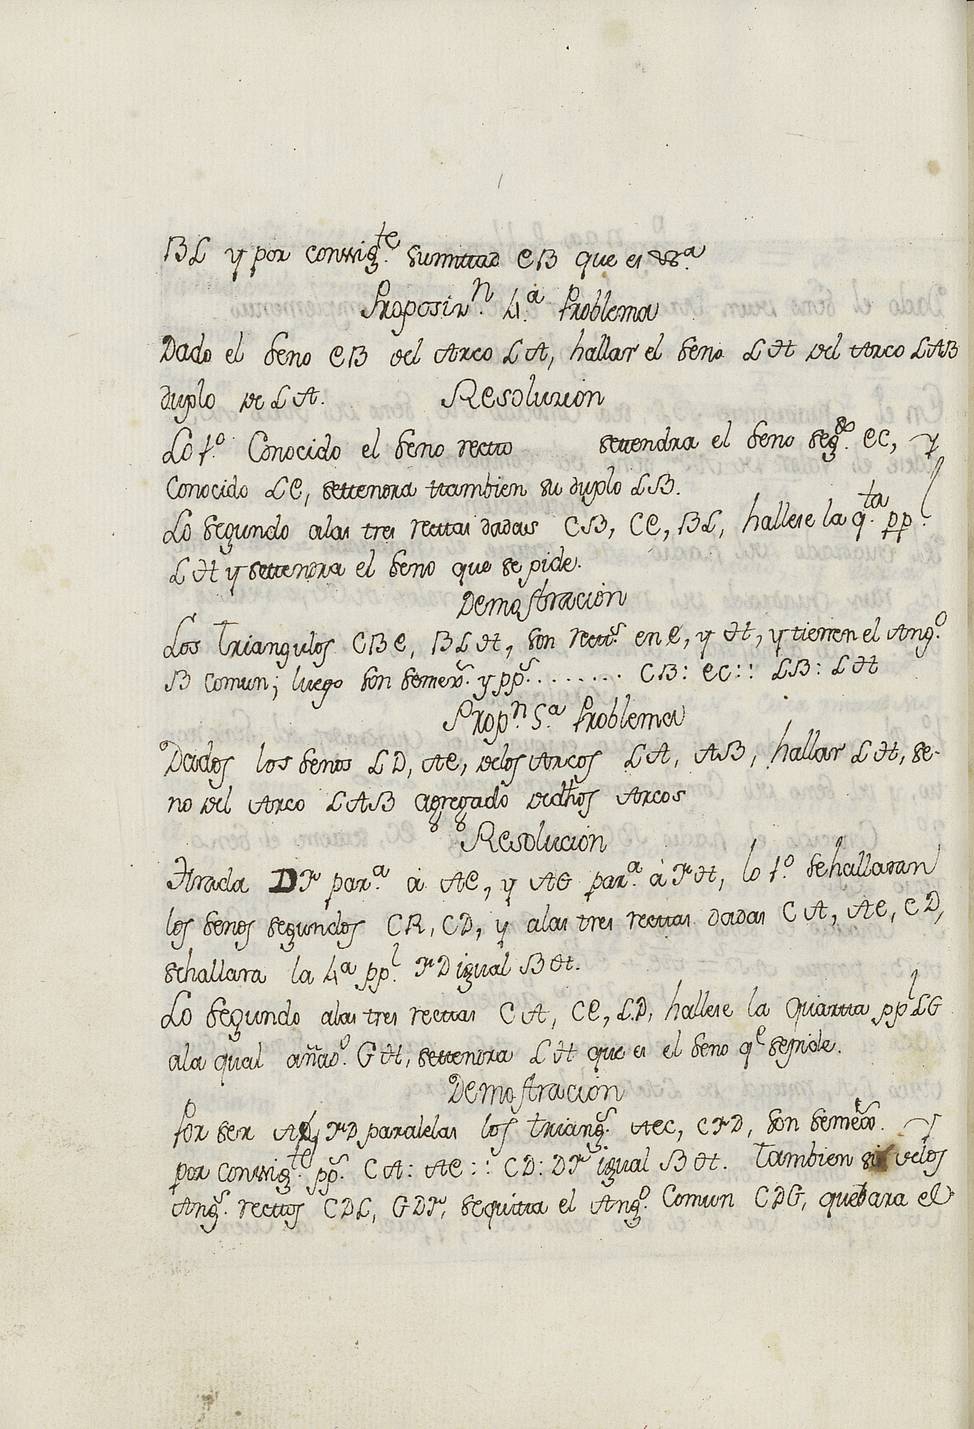 BL y por conssig.te su mitad EB que es &.a
Proposiz.n 4.a Problema
Dado el seno EB del Arco LA, hallar el seno LH del Arco LAB
duplo de LA. Resoluzion
Lo 1.o Conocido el seno recto settendra el seno seg.do EC, y
Conocido LE, settendra ttambien su duplo LB.
Lo Segundo alas tres rectas dadas CB, CE, BL, hallese la q.ta pp.l
LH y settendra el seno que se pide.
Demostracion
Los Triangulos CBE, BLH, son rect.s en E, y H, y tienen el Ang.o
B comun; luego son semex.s y pp.s ........ CB: EC:: LB: LH
Prop.n 5.a Problema
Dados los senos LD, AE, delos Arcos LA, AB, hallar LH, se-
no del Arco LAB agregado dedhos Arcos
Resolucion
Tirada DI par.a à AE, y AG par.a à IH, lo 1.o se hallaran
los senos segundos CR, CD, y alas tres rectas dadas CA, AE, CD,
sehallara la 4.a pp.l ID igual BH.
Lo Segundo alas tres rectas CA, CE, LD, hallese la Quarta pp.l LG
ala qual añad.o GH, settendra LH que es el seno q.e sepide.
Demostracion
Por ser ID paralelas los triang.s AEC, CID, son semex.s y
por conssig.te pp.s CA: AE:: CD: DI igual BH. Tambien si delos
Ang.s rectos CDL, GDI, sequitta el Ang.o Comun CDG, quedara el